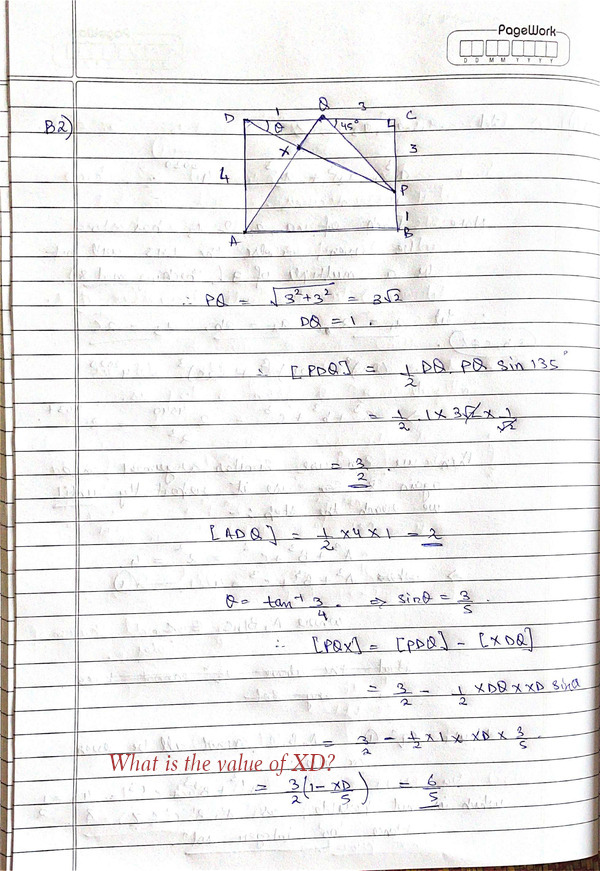 PageWork
D D M M Y Y Y Y
B2)
D 1 Q 3 C
θ 45°
X 3
4
P
1
A B
∴ PQ = √3²+3² = 3√2
DQ = 1.
∴ [PDQ] = 1/2 DQ. PQ sin 135°
= 1/2 . 1 × 3√2 × 1/√2
= 3/2.
[ADQ] = 1/2 × 4 × 1 = 2
θ = tan⁻¹ 3/4. ⇒ sinθ = 3/5.
∴ [PQX] = [PDQ] - [XDQ]
= 3/2 - 1/2 × DQ × XD sinθ
= 3/2 - 1/2 × 1 × XD × 3/5.
What is the value of XD?
= 3/2 (1 - XD/5) = 6/5